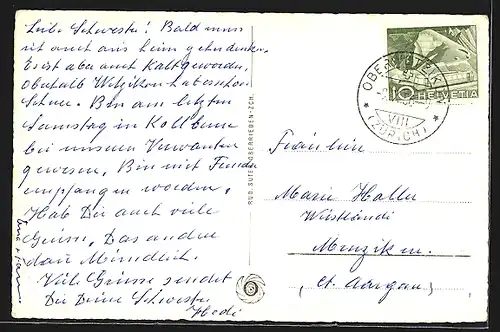 Liebe Schwester! Bald muss
ich auch ans heim gehn denken.
Es ist aber auch kalt geworden,
oberhalb Wetzikon hat es schon
Schnee. Bin am letzten
Samstag in Kollbrunn
bei unseren Verwandten
gewesen, Bin mit Freuden
empfangen worden,
Hab Dir auch viele
Grüsse, Das andere
dan Mündlich.
Viele Grüsse sendet
Dir Deine Schwester
Hedi
RUD. SUTER, OBERRIEDEN-ZCH.
10 HELVETIA
OBERWETZIKON
VIII
(ZÜRICH)
Fräulein
Marie Haller
Menziken.
(Ct. Aargau)